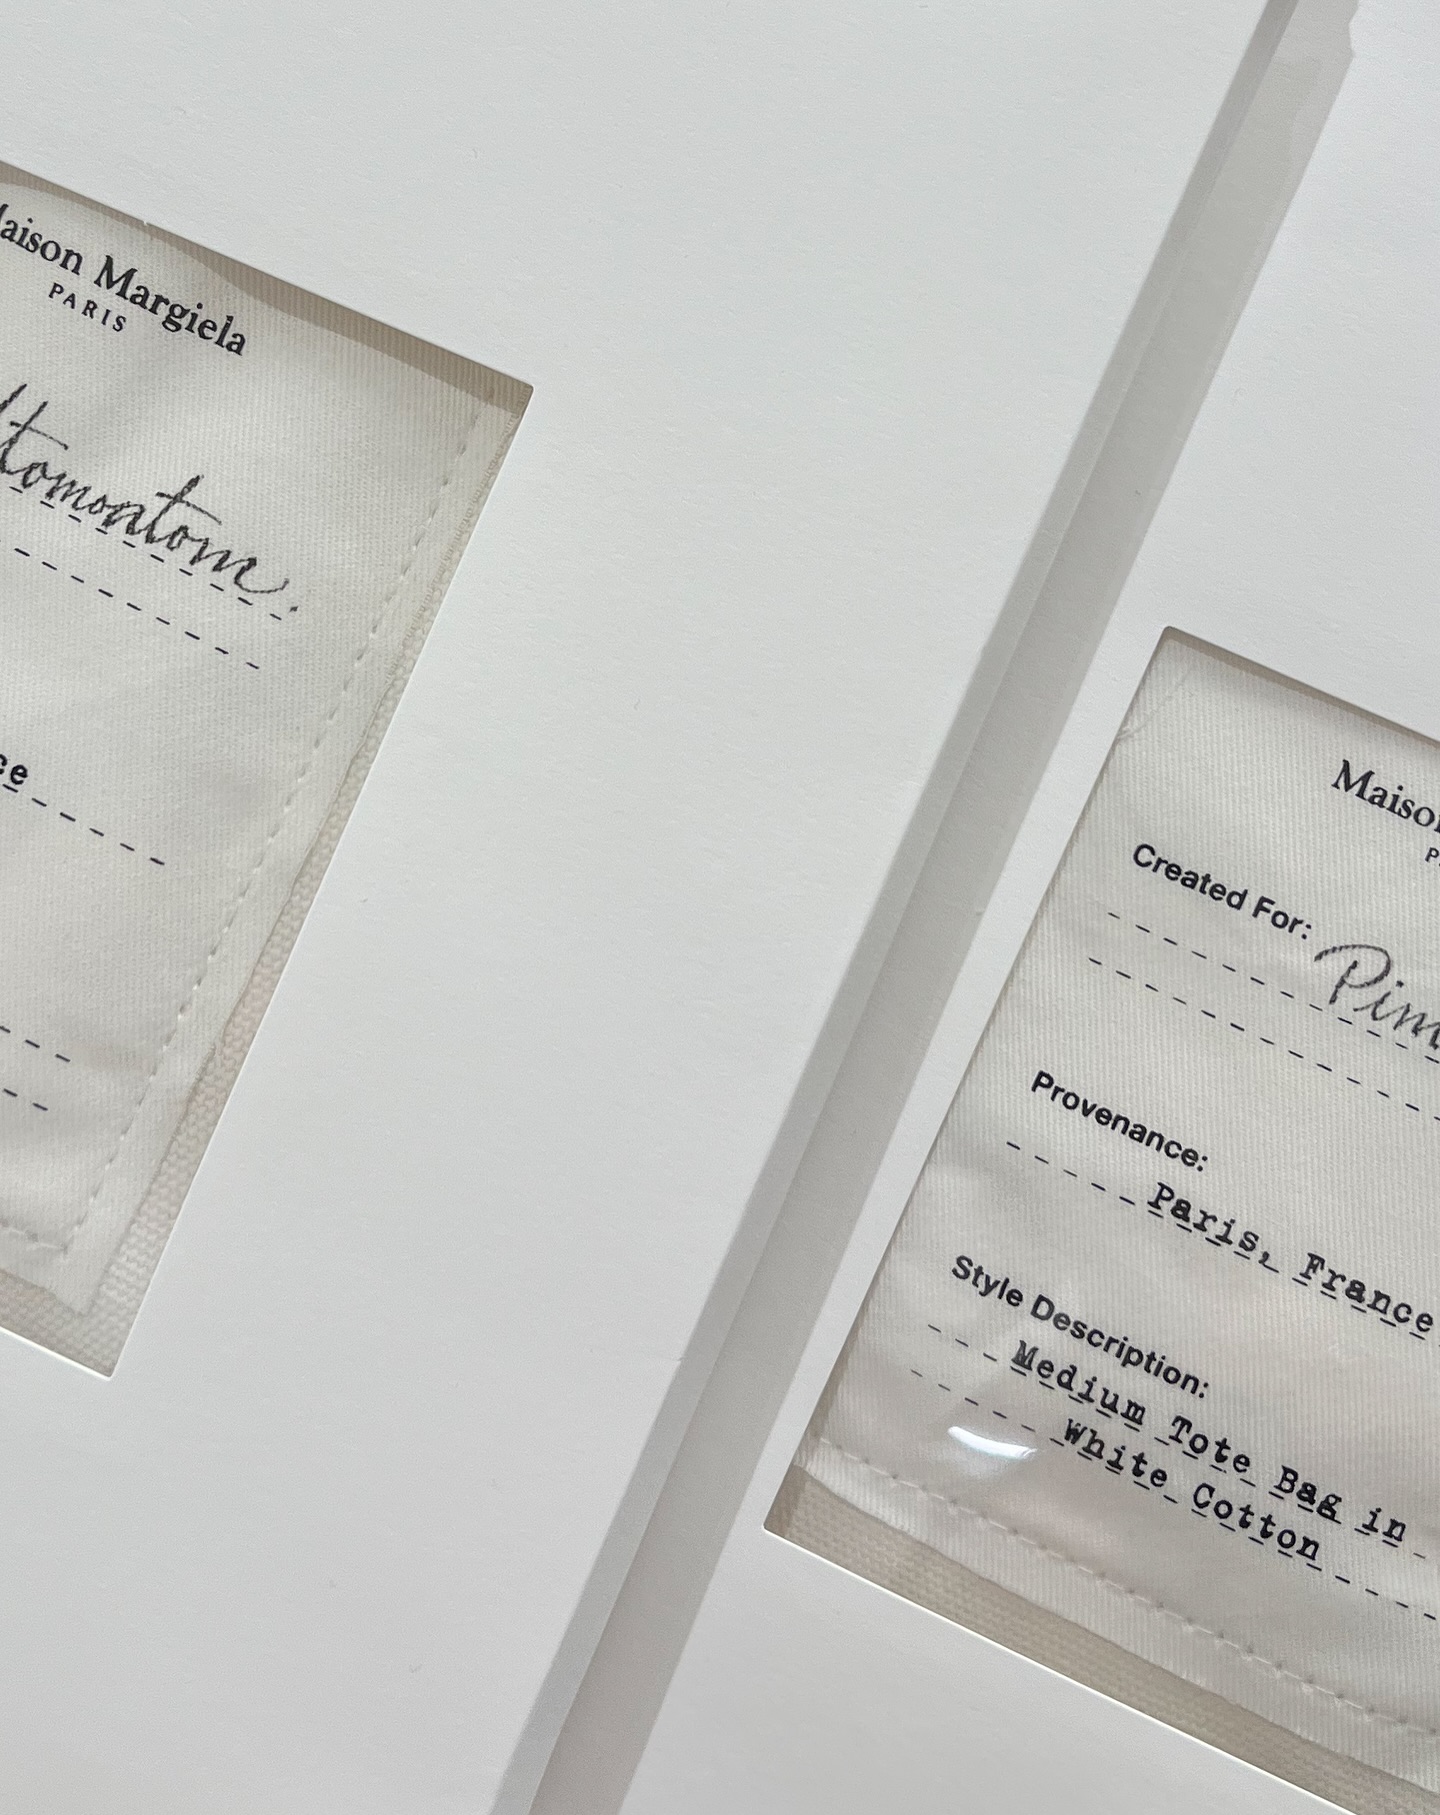 Maison Margiela
PARIS
ltomontom.
ce
Maison
P
Created For:
Pim
Provenance:
Paris, France
Style Description:
Medium Tote Bag in
White Cotton